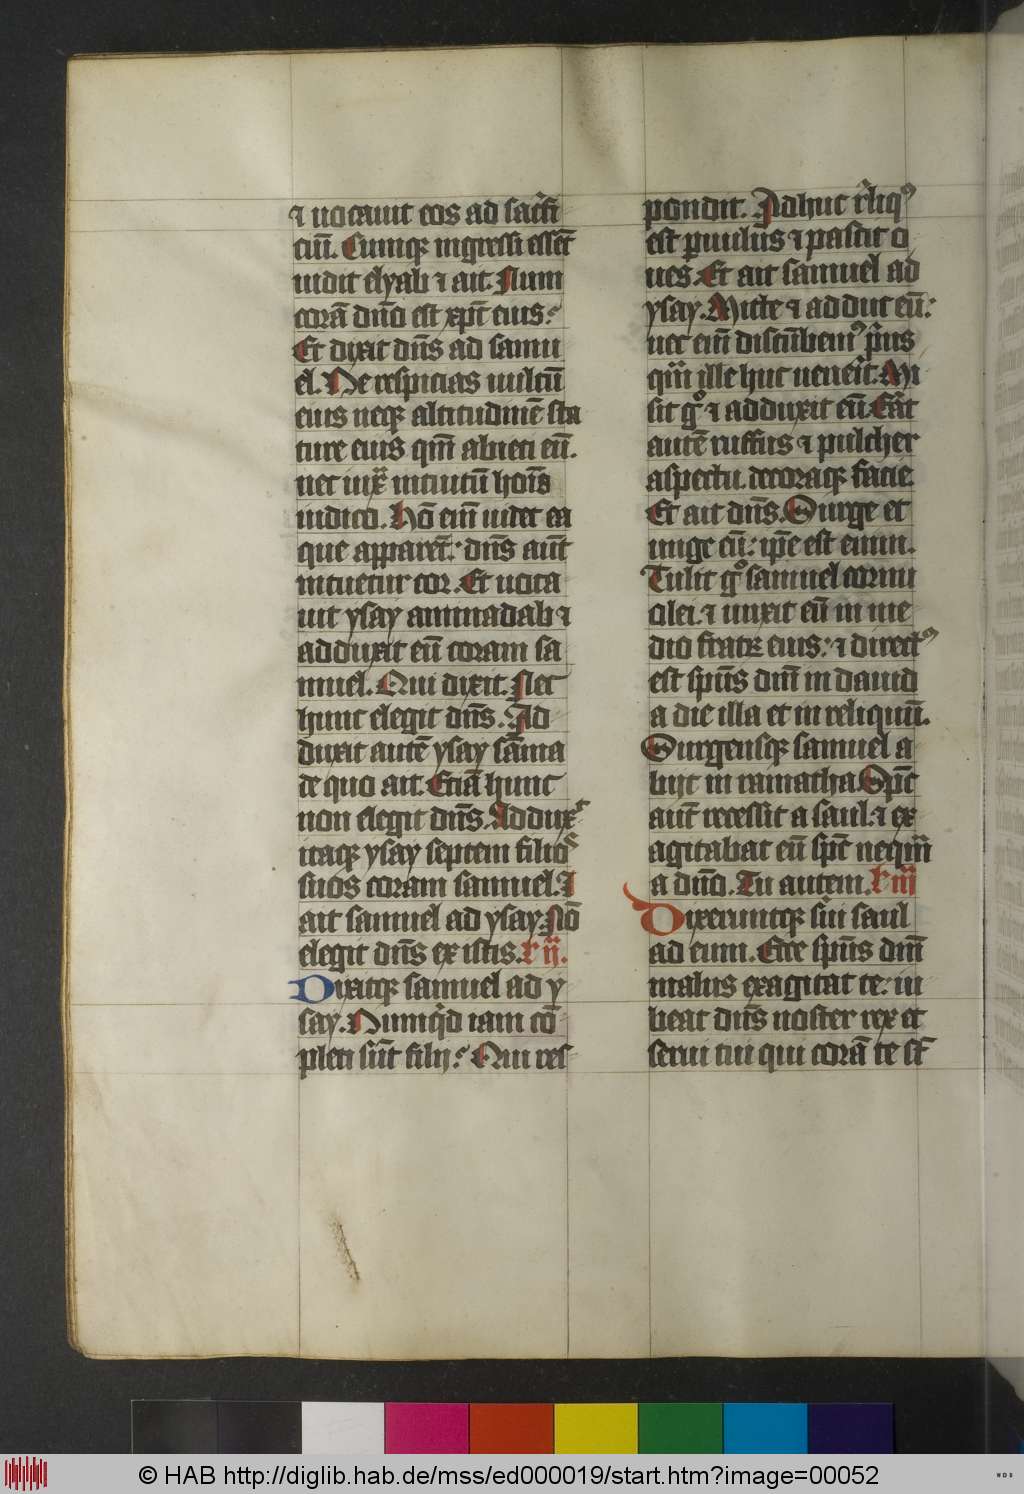 ⁊ uocauit eos ad sac̾fi
ciū. Cumqꝫ ingressi essēt
uidit elyab ⁊ ait. Num
corā dn̄o est xp̄c eius:
Et dixit dn̄s ad samu
el. Ne respicias uultū
eius neqꝫ altitudinē sta
ture eius qm̄ abieci eū.
nec iux̄ intuitū hoīs
iudico. Hō eni᷑ uidet ea
que apparēt: dn̄s aūt
intuetur cor. Et uoca
uit ysay aminadab ⁊
adduxit eū coram sa
muel. Qui dixit. Nec
hunc elegit dn̄s. Ad
duxit autē ysay sāma
de quo ait. Etiā hunc
non elegit dn̄s. Addux᷑
itaqꝫ ysay septem filio
suos coram samuel. ⁊
ait samuel ad ysay. Nō
elegit dn̄s ex istis. R ij.
Dixitqꝫ samuel ad y
say. Numq̄d iam cō
pleti sūt filij? Qui res
pondit. Adhuc r̄liqꝰ
est puulus ⁊ pascit o
ues. Et ait samuel ad
ysay. Mitte ⁊ adduc eū:
nec eni᷑ discūbemꝰ p̄us
qm̄ ille huc ueneīt. Mi
sit gͦ ⁊ adduxit eū. Eāt
autē ruffus ⁊ pulcher
aspectu. decoraqꝫ facie.
Et ait dn̄s. Surge et
unge eū: ip̄e est enim.
Tulit gͦ samuel cornu
olei. ⁊ unxit eū in me
dio fratꝝ eius: ⁊ directꝰ
est sp̄us dn̄i in dauid
a die illa et in reliquū.
Surgensqꝫ samuel a
bijt in ramatha. Sp̄c
aūt recessit a saul. ⁊ ex
agitabat eū sp̄c neqm̄
a dn̄o. Tu autem. R iij
Dixeruntqꝫ s̄ui saul
ad eum. Ecce sp̄us dn̄i
malus exagitat te: iu
beat dn̄s noster rex et
serui tui qui corā te st̄
© HAB http://diglib.hab.de/mss/ed000019/start.htm?image=00052